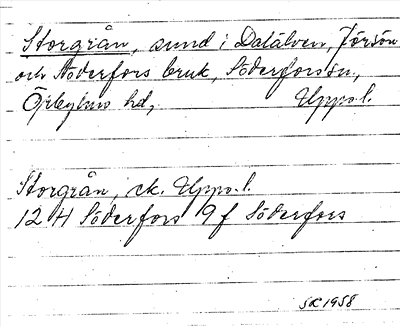 Storgrån, sund i Dalälven, Jörsön
och Söderfors bruk, Söderforssn,
Örbyhus hd, Uppo.l.
Storgrån, ek. Uppo.l.
12 H Söderfors 9 f Söderfors
SK 1958